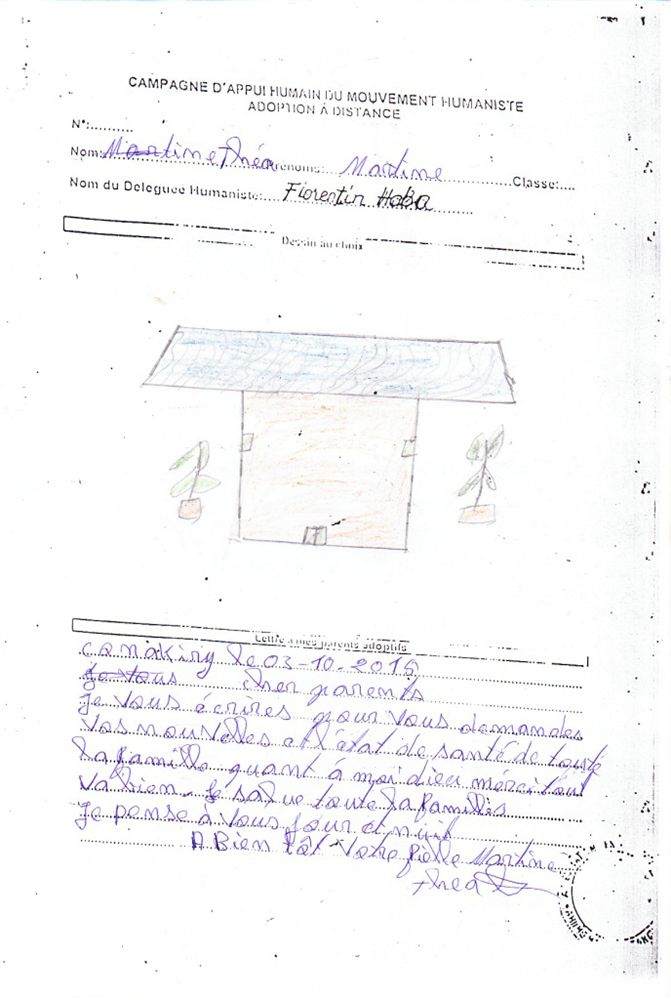 CAMPAGNE D'APPUI HUMAIN DU MOUVEMENT HUMANISTE
ADOPTION À DISTANCE
N°:..........
Nom: Martine Théa Prénoms: Martine Classe:....
Nom du Déléguée Humaniste: Florentin Haba
Dessin au choix
Lettre à mes parents adoptifs
conakiry le 03-10-2015
je vous cher parents
je vous écrires pour vous demandes
vos nouvelles et l'état de santé de toute
la famille quant à moi dieu mérci tout
va bien. je salue toute la famille
je pense à vous jour et nuit
A Bien tôt votre fielle Martine
théa